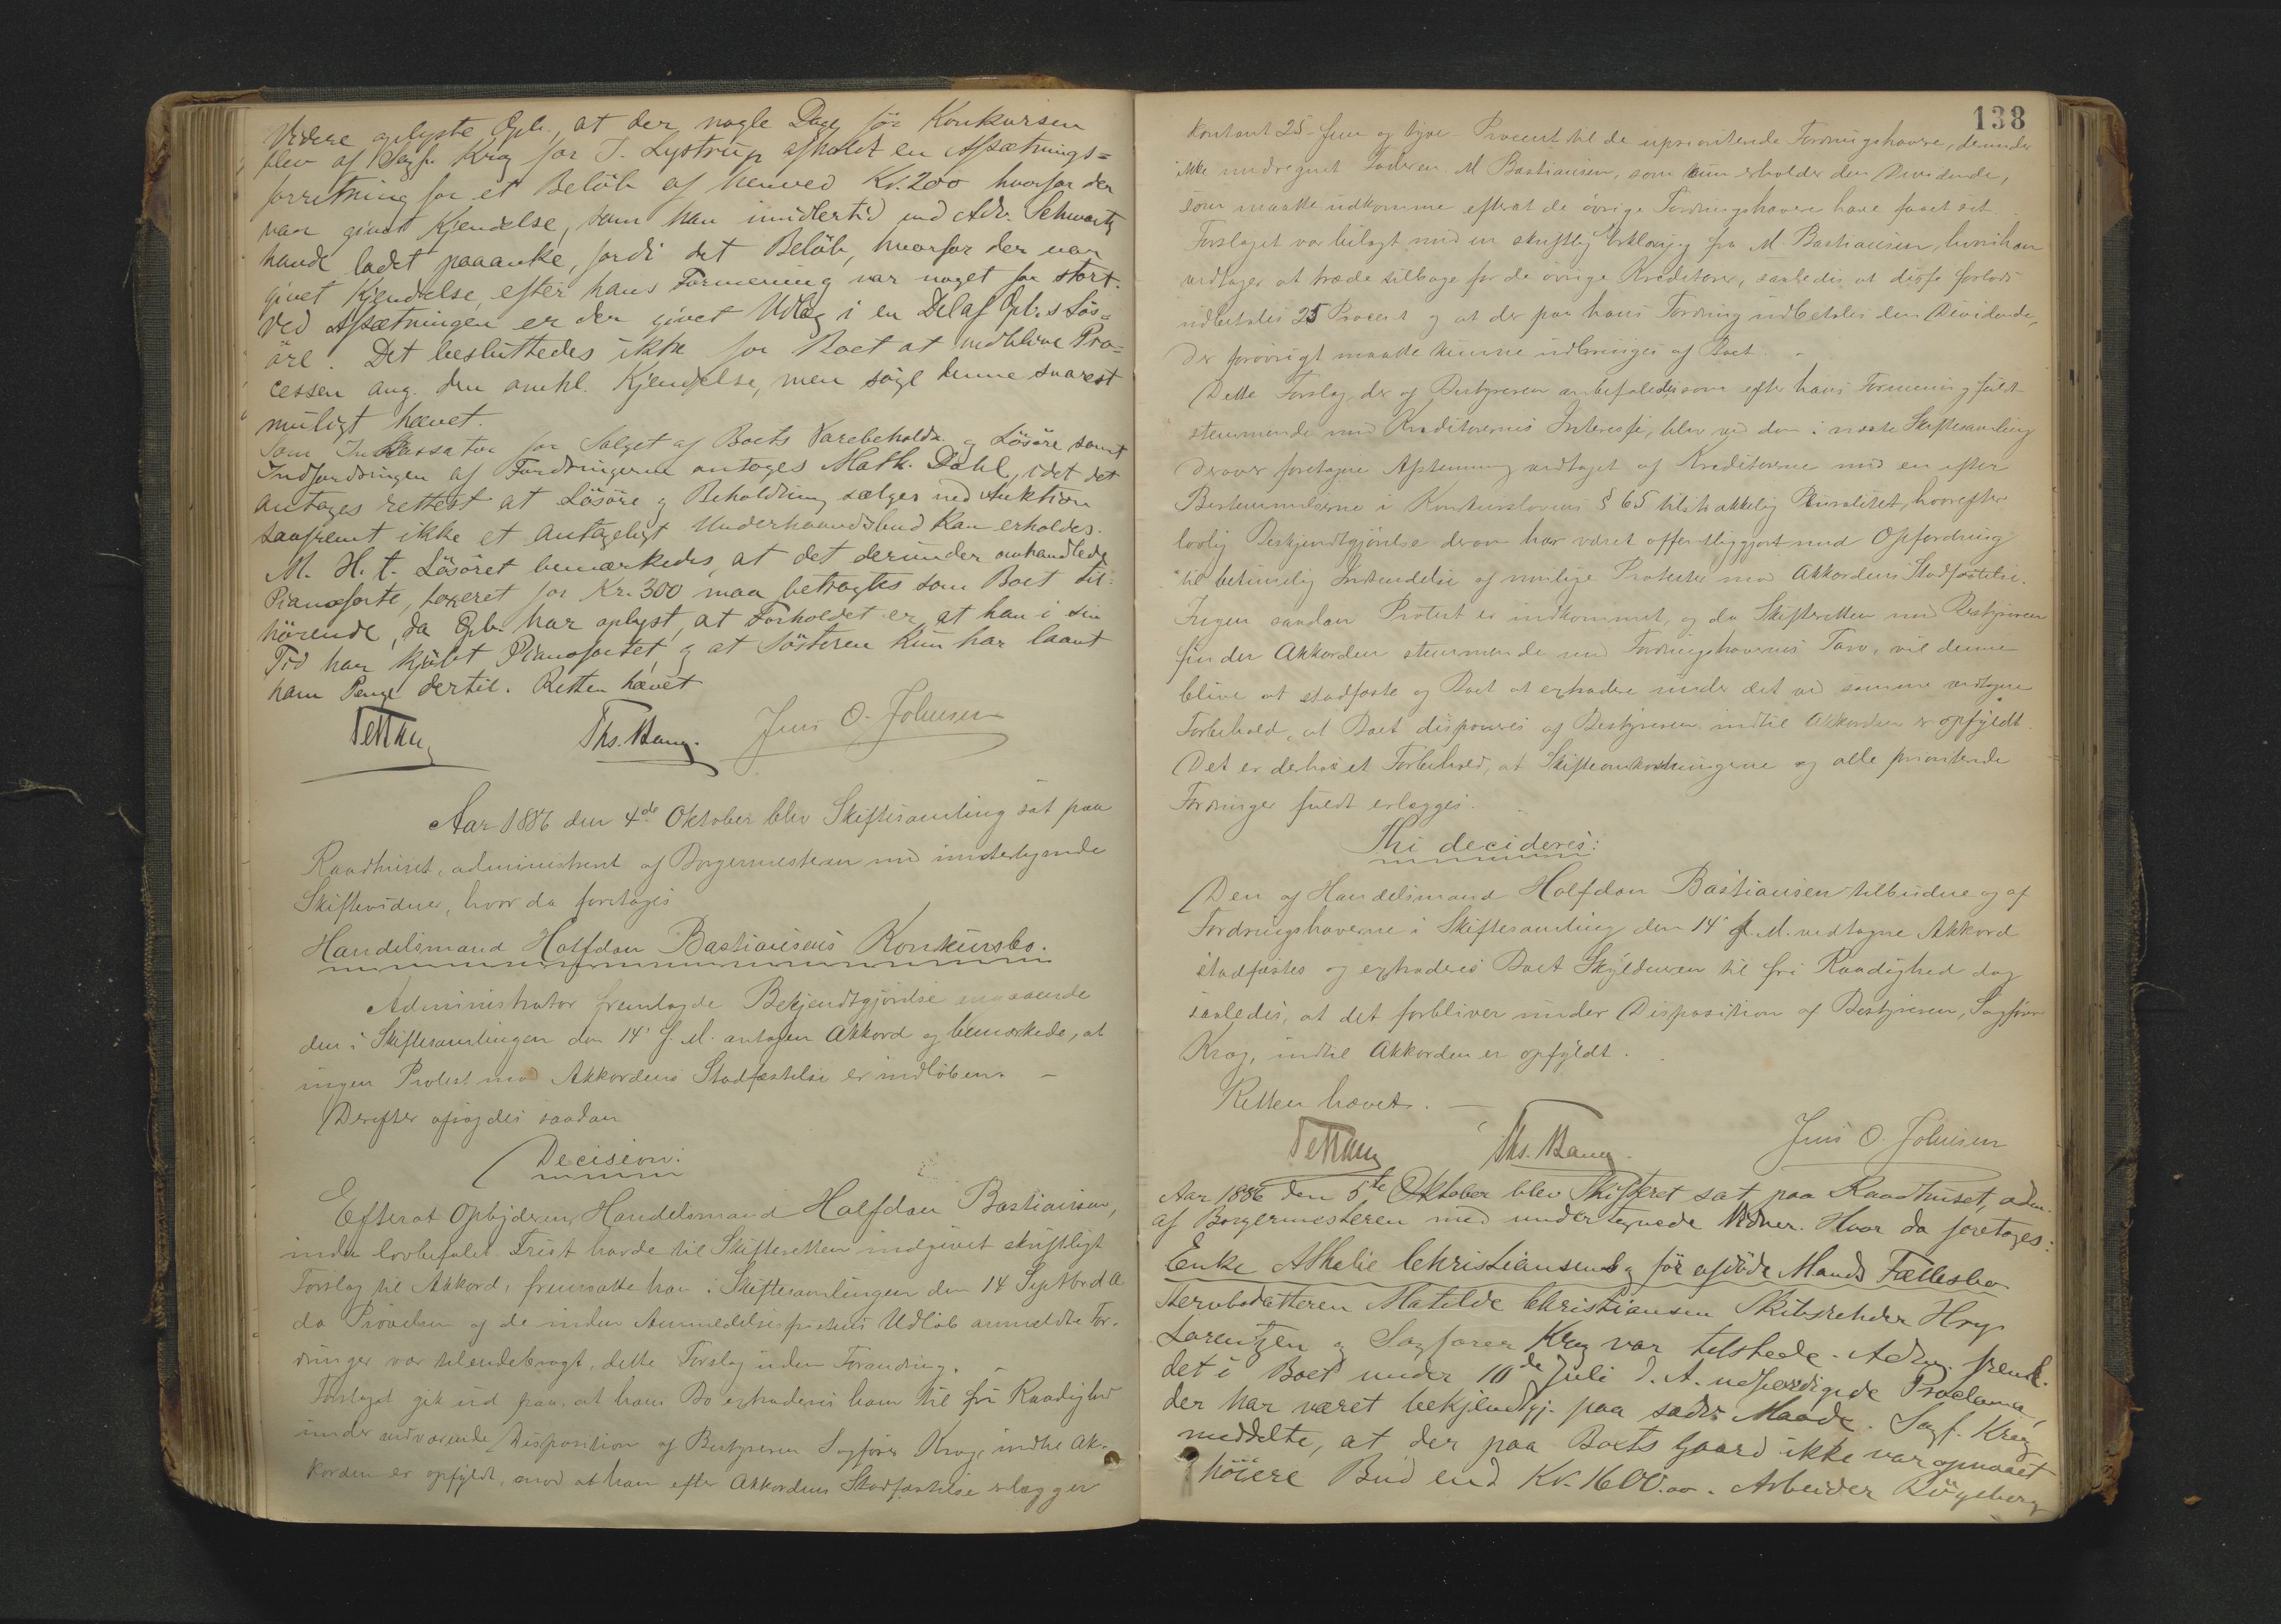 Videre oplyste Opb., at der nogle Dage før Konkursen
blev af Sagf. Krog for J. Lystrup afholdt en Afsætnings=
forretning for et Beløb af henved Kr. 200 hvorfor der
var givet Kjendelse, som han imidlertid ved Adv. Schwartz
havde ladet paaanke, fordi det Beløb, hvorfor der var
givet Kjendelse, efter hans Formening var noget for stort.
Ved Afsætningen er der givet Udlæg i en Del af Opb.s Løs=
øre. Det besluttedes ikke for Boet at vedblive Pro=
cessen ang. den omhl. Kjendelse, men søge denne snarest
muligt hævet.
Som Inkassator for Salget af Boets Varebeholdn. og Løsøre samt
Indfordringen af Fordringerne antoges Math. Dahl, idet det
antages rettest at Løsøre og Beholdning sælges ved Auktion
saafremt ikke et antageligt Underhaandsbud kan erholdes.
M. H. t. Løsøret bemærkedes, at det derunder omhandlede
Pianoforte, taxeret for Kr. 300 maa betragtes som Boet til=
hørende, da Opb. har oplyst, at Forholdet er, at han i sin
Tid har kjøbt Pianofortet, og at Søsteren kun har laant
ham Penge dertil. Retten hævet
Ths. Bang. Jens O. Johnsen
Aar 1886 den 4de Oktober blev Skiftesamling sat paa
Raadhuset, administreret af Borgermesteren med undertegnede
Skiftevidner, hvor da foretoges
Handelsmand Halfdan Bastiansens Konkursbo.
Administrator fremlagde Bekjendtgjørelse angaaende
den i Skiftesamlingen den 14' f. M. antagen Akkord og bemærkede, at
ingen Protest mod Akkordens Stadfæstelse er indløben. —
Derefter afsagdes saadan
Decision:
Efterat Opbyderen, Handelsmand Halfdan Bastiansen,
inden lovbefalet Frist havde til Skifteretten indgivet skriftligt
Forslag til Akkord, fremsatte han i Skiftesamlingen den 14 Septbr d. A
da Prøvelsen af de inden Anmeldelsesfristens Udløb anmeldte For-
dringer var tilendebragt, dette Forslag uden Forandring. —
Forslaget gik ud paa, at hans Bo extraderes ham til fri Raadighed
under vedvarende Disposition af Bestyreren Sagfører Krog, indtil Ak-
korden er opfyldt, mod at han efter Akkordens Stadfæstelse erlægger
138
kontant 25 - fem og tyve - Procent til de uprioriterede Fordringshavere, derunder
ikke medregnet Faderen M Bastiansen, som kun erholder den Dividende,
som maatte udkomme efterat de øvrige Fordringshavere have faaet sit.
Forslaget var bilagt med en skriftlig Erklæring fra M. Bastiansen, hvori han
vedtager at træde tilbage for de øvrige Kreditorer, saaledes at disse forlods
udbetales 25 Procent og at der paa hans Fordring udbetales den Dividende,
der forøvrigt maatte kunne udbringes af Boet. -
Dette Forslag, der af Bestyreren anbefaledes som efter hans Formening fuldt
stemmende med Kreditorernes Interesse, blev ved den i næste Skiftesamling
derover foretagne Afstemning vedtaget af Kreditorerne med en efter
Bestemmelserne i Konkurslovens § 65 tilstrækkelig Pluralitet, hvorefter
lovlig Bekjendtgjørelse derom har været offentliggjort med Opfordring
til betimelig Indsendelse af mulige Protester mod Akkordens Stadfæstelse.
Ingen saadan Protest er indkommet, og da Skifteretten med Bestyreren
finder Akkorden stemmende med Fordringshavernes Tarv, vil denne
blive at stadfæste og Boet at extradere under det ved samme vedtagne
Forbehold, at Boet disponeres af Bestyreren indtil Akkorden er opfyldt.
Det er derhos et Forbehold, at Skifteomkostningerne og alle prioriterede
Fordringer fuldt erlægges.
Thi decideres:
Den af Handelsmand Halfdan Bastiansen tilbudne og af
Fordringshaverne i Skiftesamling den 14' f. M. vedtagne Akkord
stadfæstes og extraderes Boet Skyldneren til fri Raadighed dog
saaledes, at det forbliver under Disposition af Bestyreren, Sagfører
Krog, indtil Akkorden er opfyldt.
Retten hævet. —
Ths. Bang. Jens O. Johnsen
Aar 1886 den 5te Oktober blev Skifteret sat paa Raadhuset, adm.
af Borgermesteren med undertegnede Vidner. Hvor da foretoges:
Enke Athalie Christiansens og før afdøde Mands Fællesbo
Stervbodatteren Matilde Christiansen Skibsreder Hry.
Lorentzen og Sagfører Krog var tilstede. Adm. freml.
det i Boet under 10de Juli d. A. udfærdigede Proclama,
der har været bekjendtgj. paa sædv. Maade. Sagf. Krog
meddelte, at der paa Boets Gaard ikke var opnaaet
høiere Bud end Kr. 1600.00. Arbeider Bügeberg